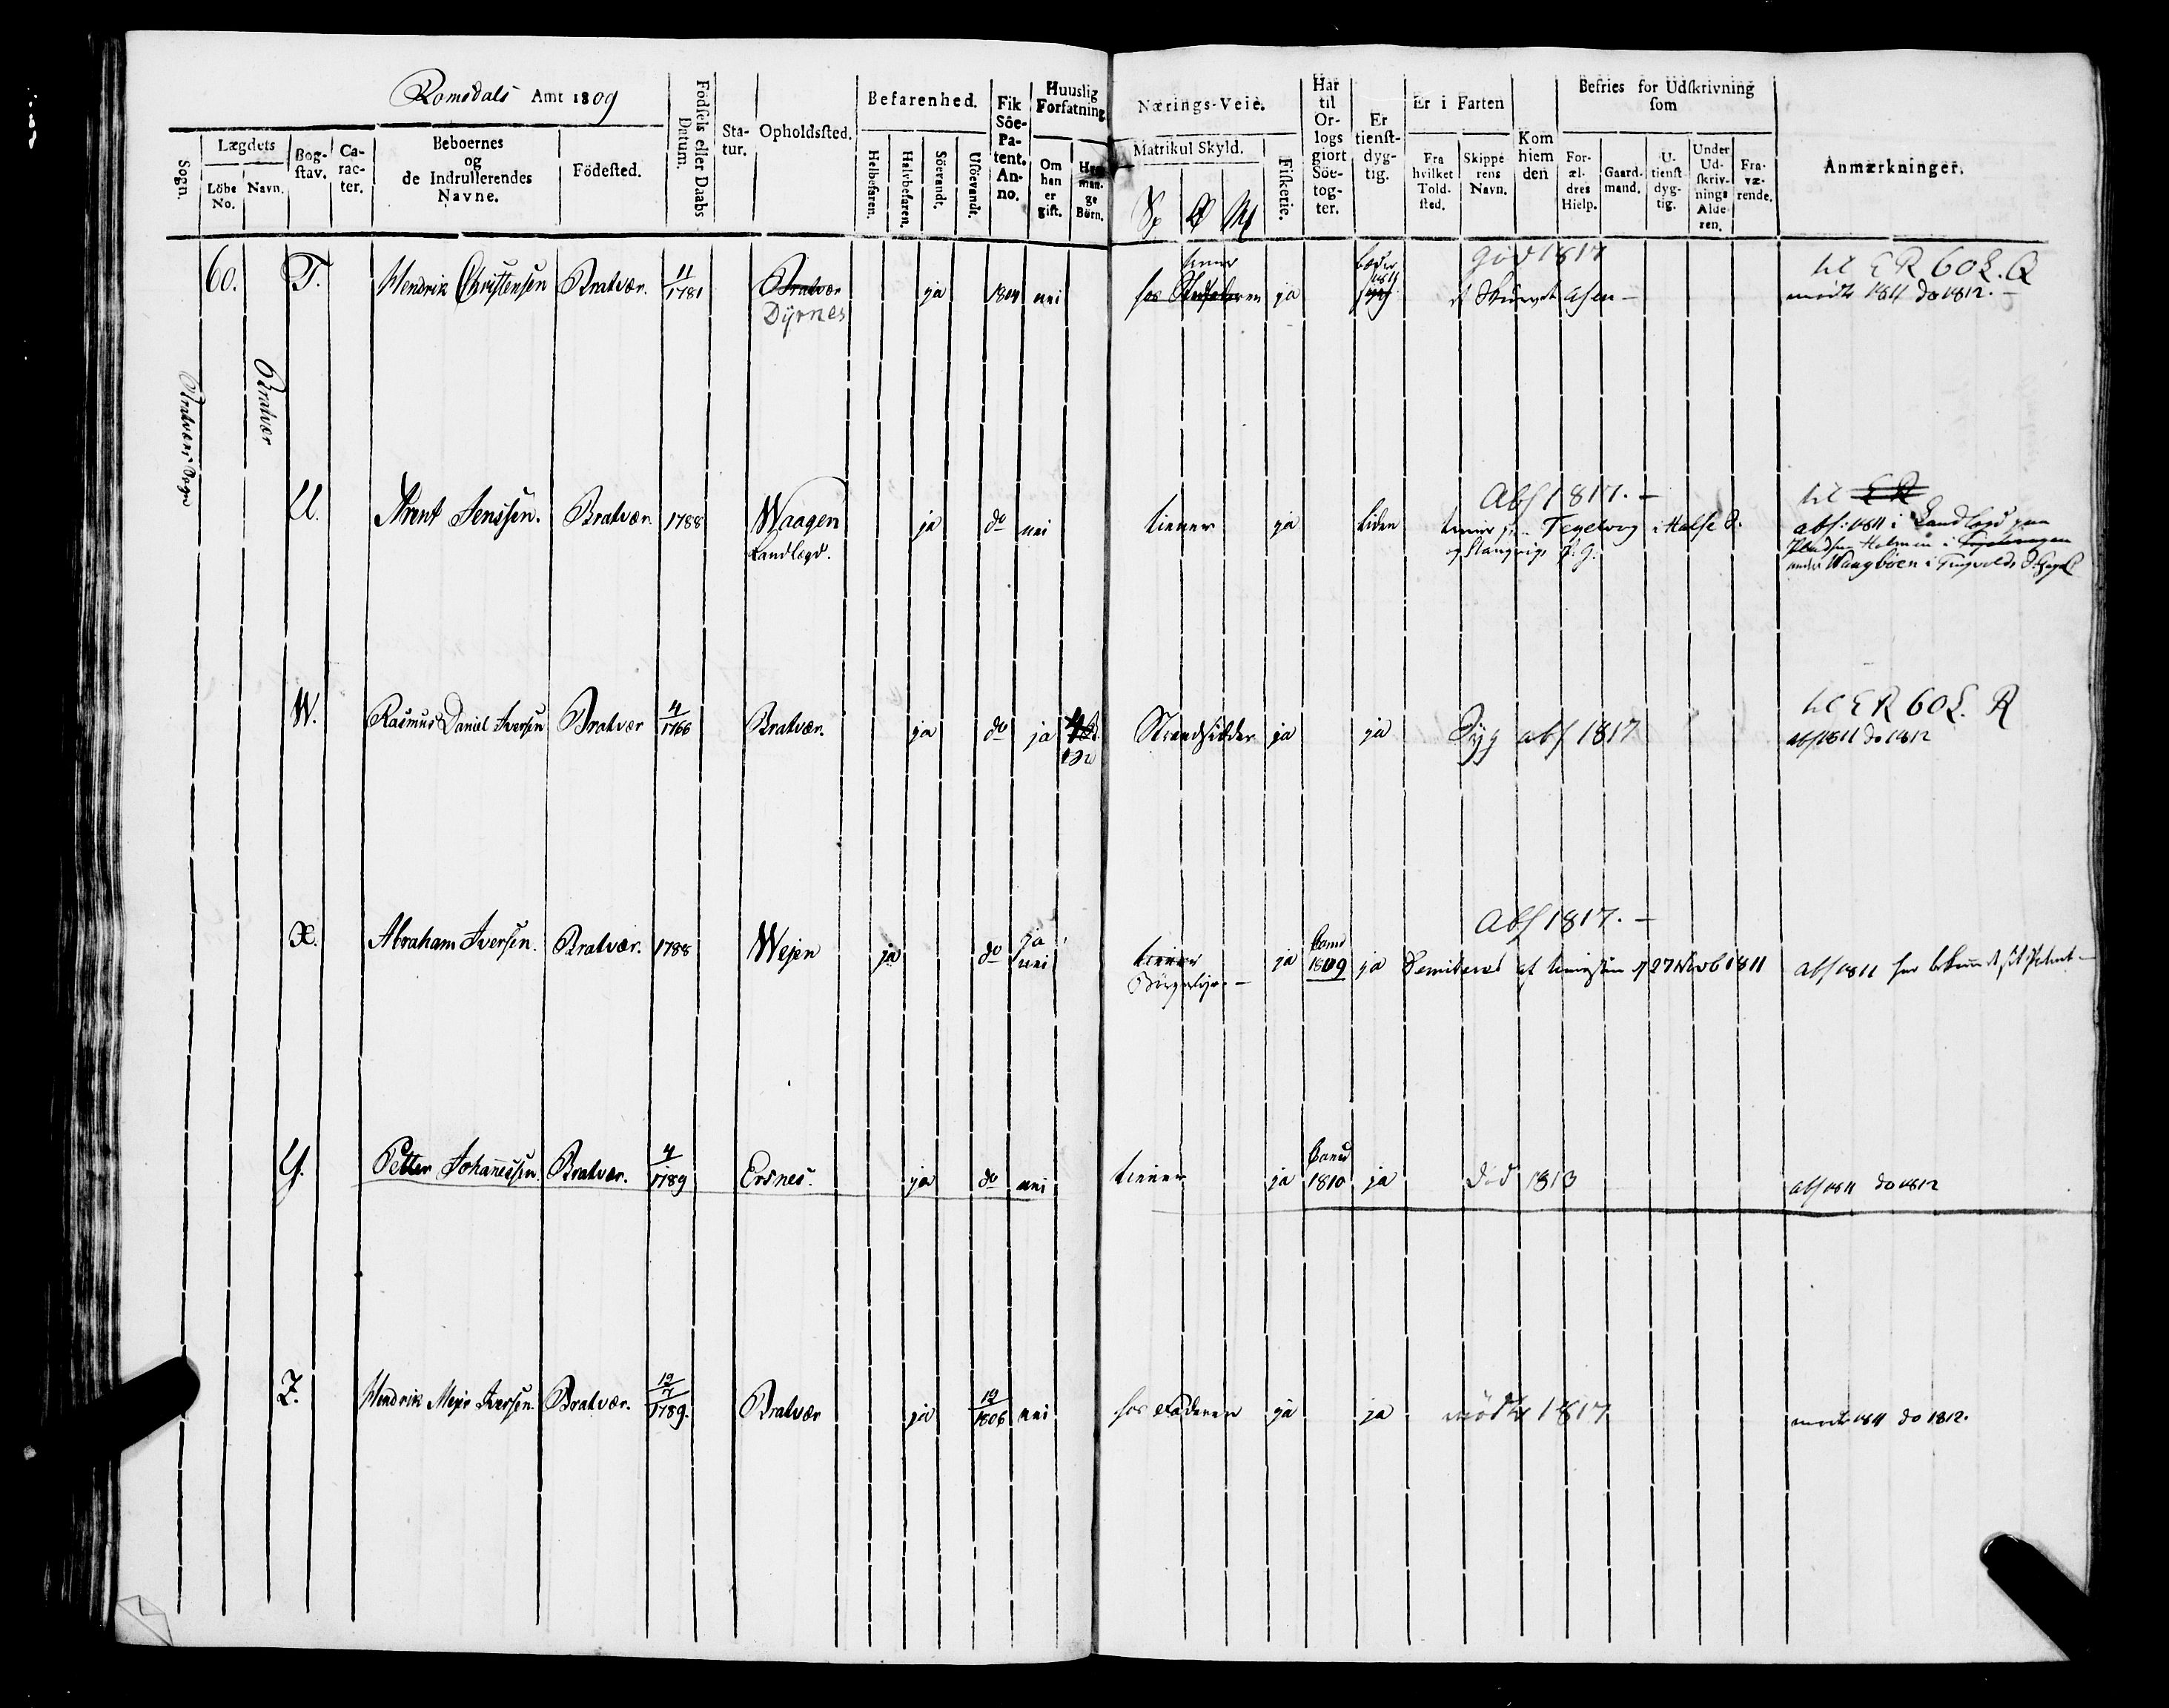 Romsdals Amt 1809
Sogn.
Lægdets
Löbe No.
Navn.
Bog-stav.
Ca-rac-ter.
Beboernes og de Indrullerendes Navne.
Födested.
Födsels eller Daabs Datum.
Sta-tur.
Opholdssted.
Befarenhed.
Helbefaren.
Halvbefaren.
Söevandt.
Usöevandt.
Fik Söe-Pa-tent. An-no.
Huuslig Forfatning
Om han er gift.
Hvor man-ge Börn.
Nærings-Veie.
Matrikul Skyld.
Fiskerie.
Har til Or-logs giort Söe-tog-ter.
Er tienst-dyg-tig.
Er i Farten
Fra hvilket Told-sted.
Skippe rens Navn.
Kom hiem den
Befries for Udskrivning som
For-æl-dres Hielp.
Gaard-mand.
U-tienst dyg-tig.
Under Ud-skriv-nings Alde-ren.
Fra-væ-rende.
Anmærkninger.
Bratvær Sogn
Bratvær
60. T. Hendrik Christensen Bratvær. 11/1781 Bratvær ja 1804 nei
Dyrnes
tiener
hos ja
god 1817
til E R 60 L. Q
mödte 1811 do 1812.
U. Arent Jenssen. Bratvær 1788 Waagen ja do nei
Landlægd.
tiener ja liden
Abs 1817. -
Tegelvog i Halse S.
til E R
abs: 1811 i Landlægd paa
Pladsen Holmen i
under Waagböen i Tingvolds
W. Rasmus Daniel Iversen Bratvær 4/1766 Bratvær. ja do ja
Strandsidder ja ja Syg abs 1817
til E R 60 L. R
abs 1811 do 1812
X. Abraham Iversen. Bratvær. 1788 Wejen ja do ja
nei
tiener ja 1809 ja
Abs 1817. -
27 Novb 1811
abs 1811 har bekommet sit Patent -
Y. Petter Johannessen Bratvær. 4/1789 Ersnes. ja do nei
tiener ja 1810 ja död 1813
abs 1811 do 1812
Z. Hendrik Mejer Iversen. Bratvær. 19/7/1789. Bratvær ja 19/1806 nei
hos Faderen ja ja mödte 1817
mödte 1811 do 1812.